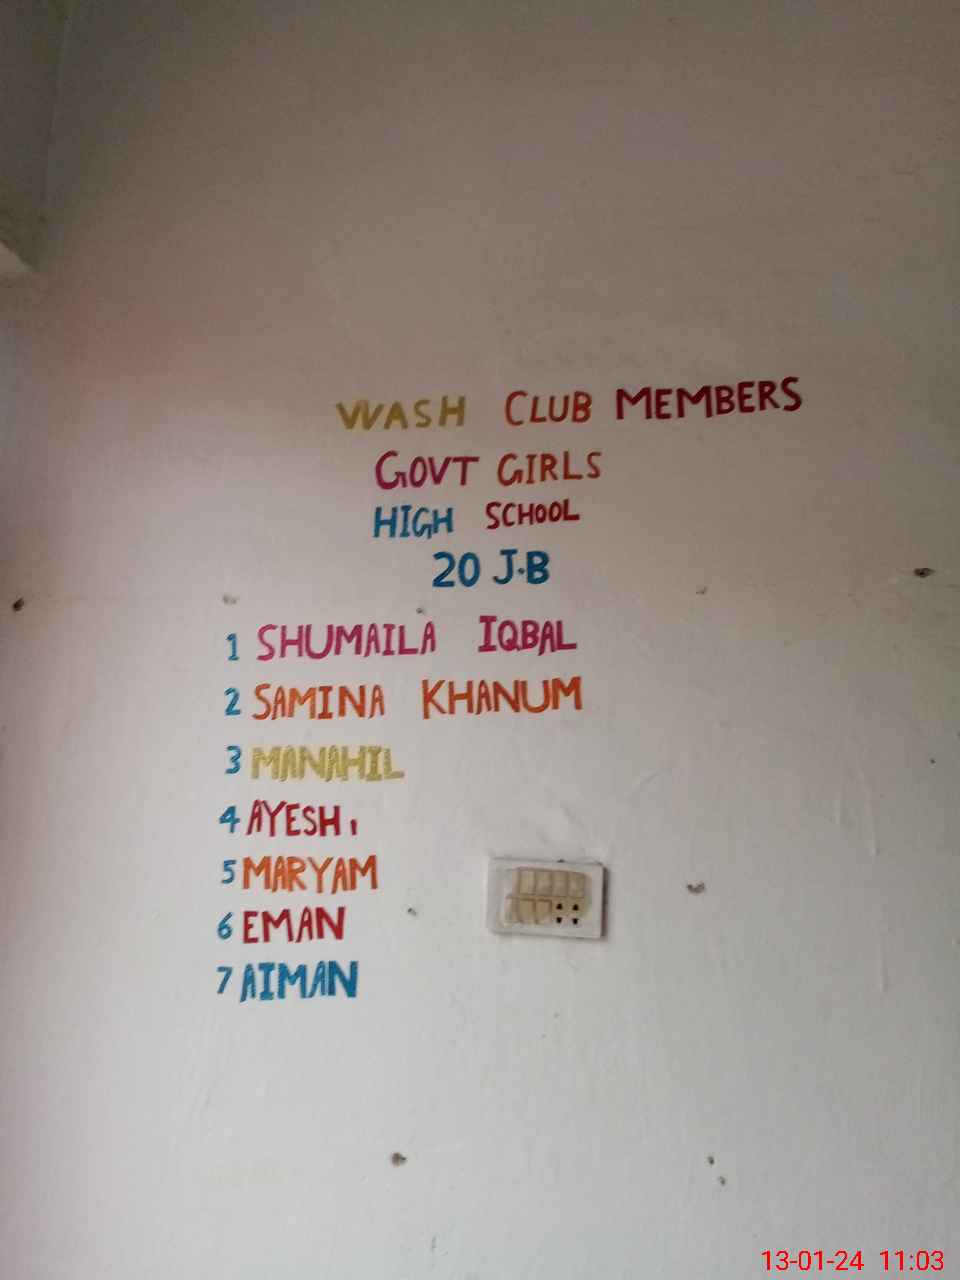 WASH CLUB MEMBERS
GOVT GIRLS
HIGH SCHOOL
20 J.B
1 SHUMAILA IQBAL
2 SAMINA KHANUM
3 MANAHIL
4 AYESHI
5 MARYAM
6 EMAN
7 AIMAN
13-01-24 11:03